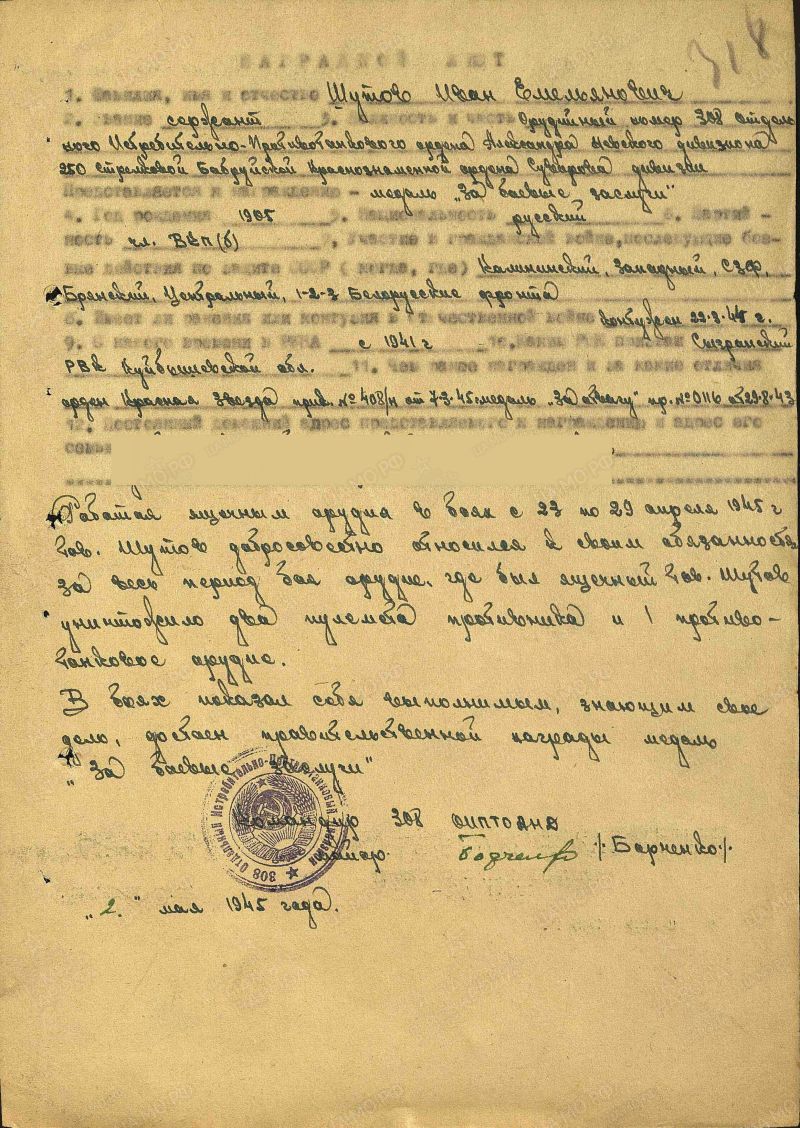 318
НАГРАДНОЙ ЛИСТ
1. Фамилия, имя и отчество Шутов Иван Емельянович
2. Звание сержант 3. Должность и часть Орудийный номер 308 отдель
ного Истребительно-Противотанкового ордена Александра Невского дивизиона
250 стрелковой Бобруйской Краснознаменной ордена Суворова дивизии
Представляется к награждению - медаль "За боевые заслуги"
4. Год рождения 1905 5. Национальность русский 6. Партий -
ность чл. ВКП(б) 7. Участие в гражданской войне, последующие бое-
вые действия по защите СССР (когда, где) Калининский, Западный, СЗФ,
Брянский, Центральный, 1-2-3 Белорусские фронта
8. Имеет ли ранения или контузии в отечественной войне контужен 22.3.45 г.
9. С какого времени в РККА с 1941 г 10. Каким РВК призван Сызранский
РВК Куйбышевской обл. 11. Чем ранее награжден и за какие отличия
орден Красная Звезда прик. № 408/н от 7.3.45. медаль "За отвагу" пр. № 0116 от 29.8.43
12. Постоянный домашний адрес представляемого к награждению и адрес его
семьи
Работая ящичным орудия в боях с 23 по 29 апреля 1945 г
тов. Шутов добросовестно относился к своим обязанностям
за весь период боя орудие, где был ящичный тов. Шутов
уничтожило два пулемета противника и 1 противо-
танковое орудие.
В боях показал себя
знающим свое
дело, достоен правительственной награды медаль
"За боевые заслуги"
Командир 308 ОИПТОДНА
майор /Барченко/
308 ОТДЕЛЬНЫЙ Истребительно-Противотанковый ДИВИЗИОН
"2." мая 1945 года.